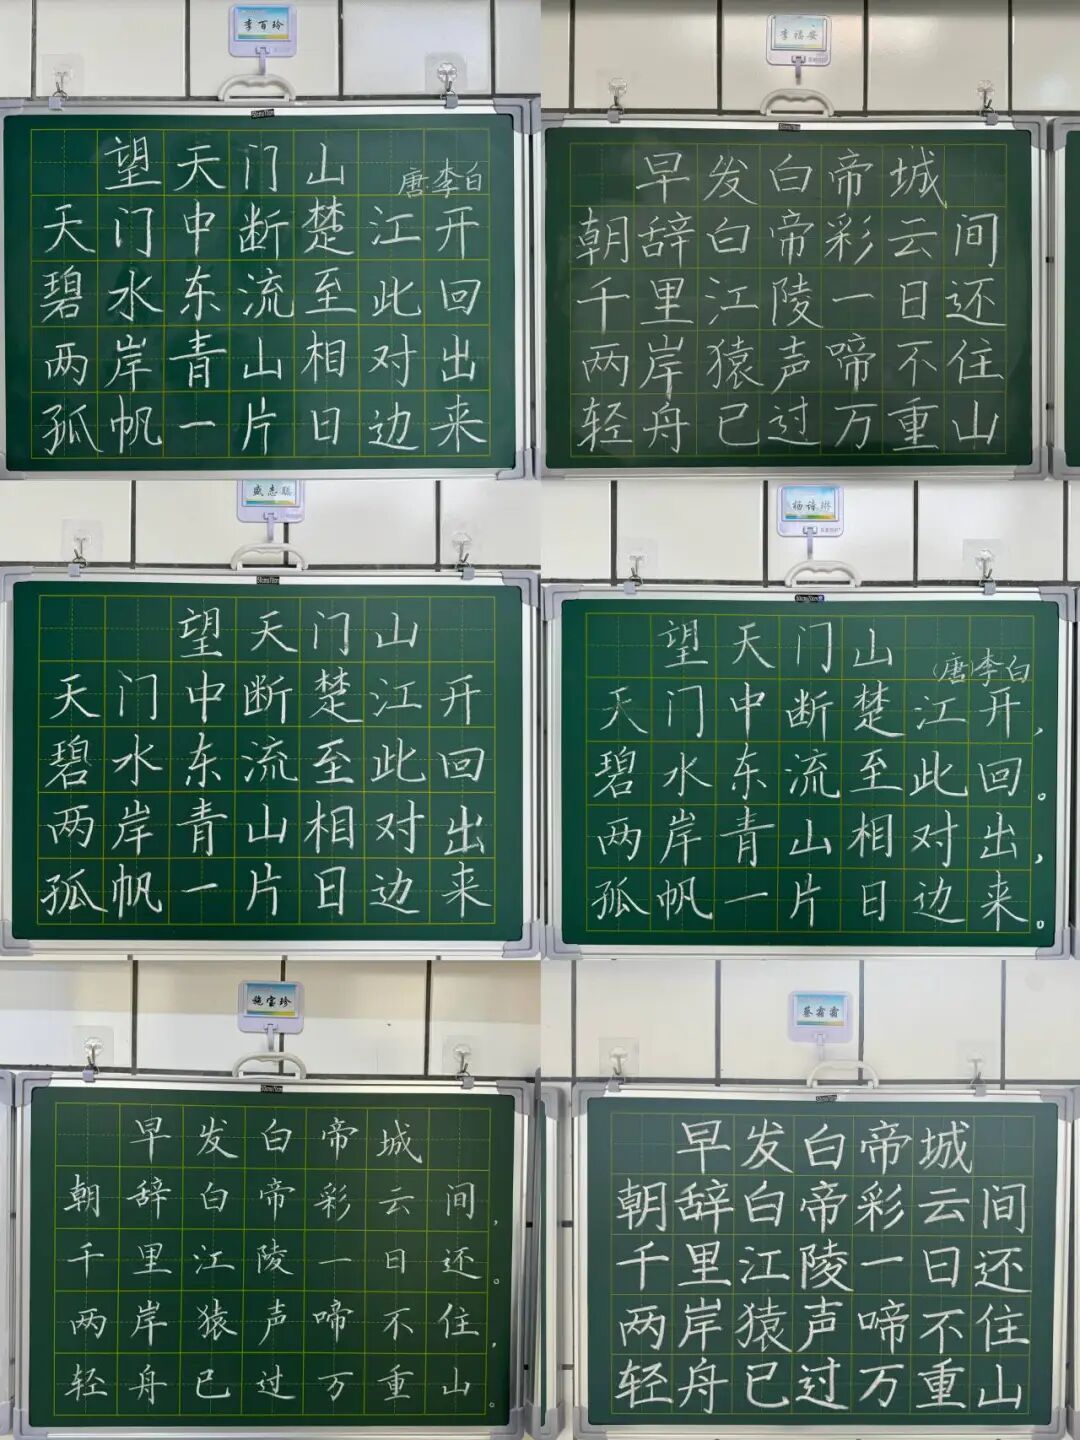 李百玲
望天门山
唐·李白
天门中断楚江开
碧水东流至此回
两岸青山相对出
孤帆一片日边来
李福安
早发白帝城
朝辞白帝彩云间
千里江陵一日还
两岸猿声啼不住
轻舟已过万重山
盛志聪
望天门山
天门中断楚江开
碧水东流至此回
两岸青山相对出
孤帆一片日边来
杨诗琳
望天门山
(唐)李白
天门中断楚江开，
碧水东流至此回。
两岸青山相对出，
孤帆一片日边来。
施宝珍
早发白帝城
朝辞白帝彩云间，
千里江陵一日还。
两岸猿声啼不住，
轻舟已过万重山。
蔡霜霜
早发白帝城
朝辞白帝彩云间
千里江陵一日还
两岸猿声啼不住
轻舟已过万重山